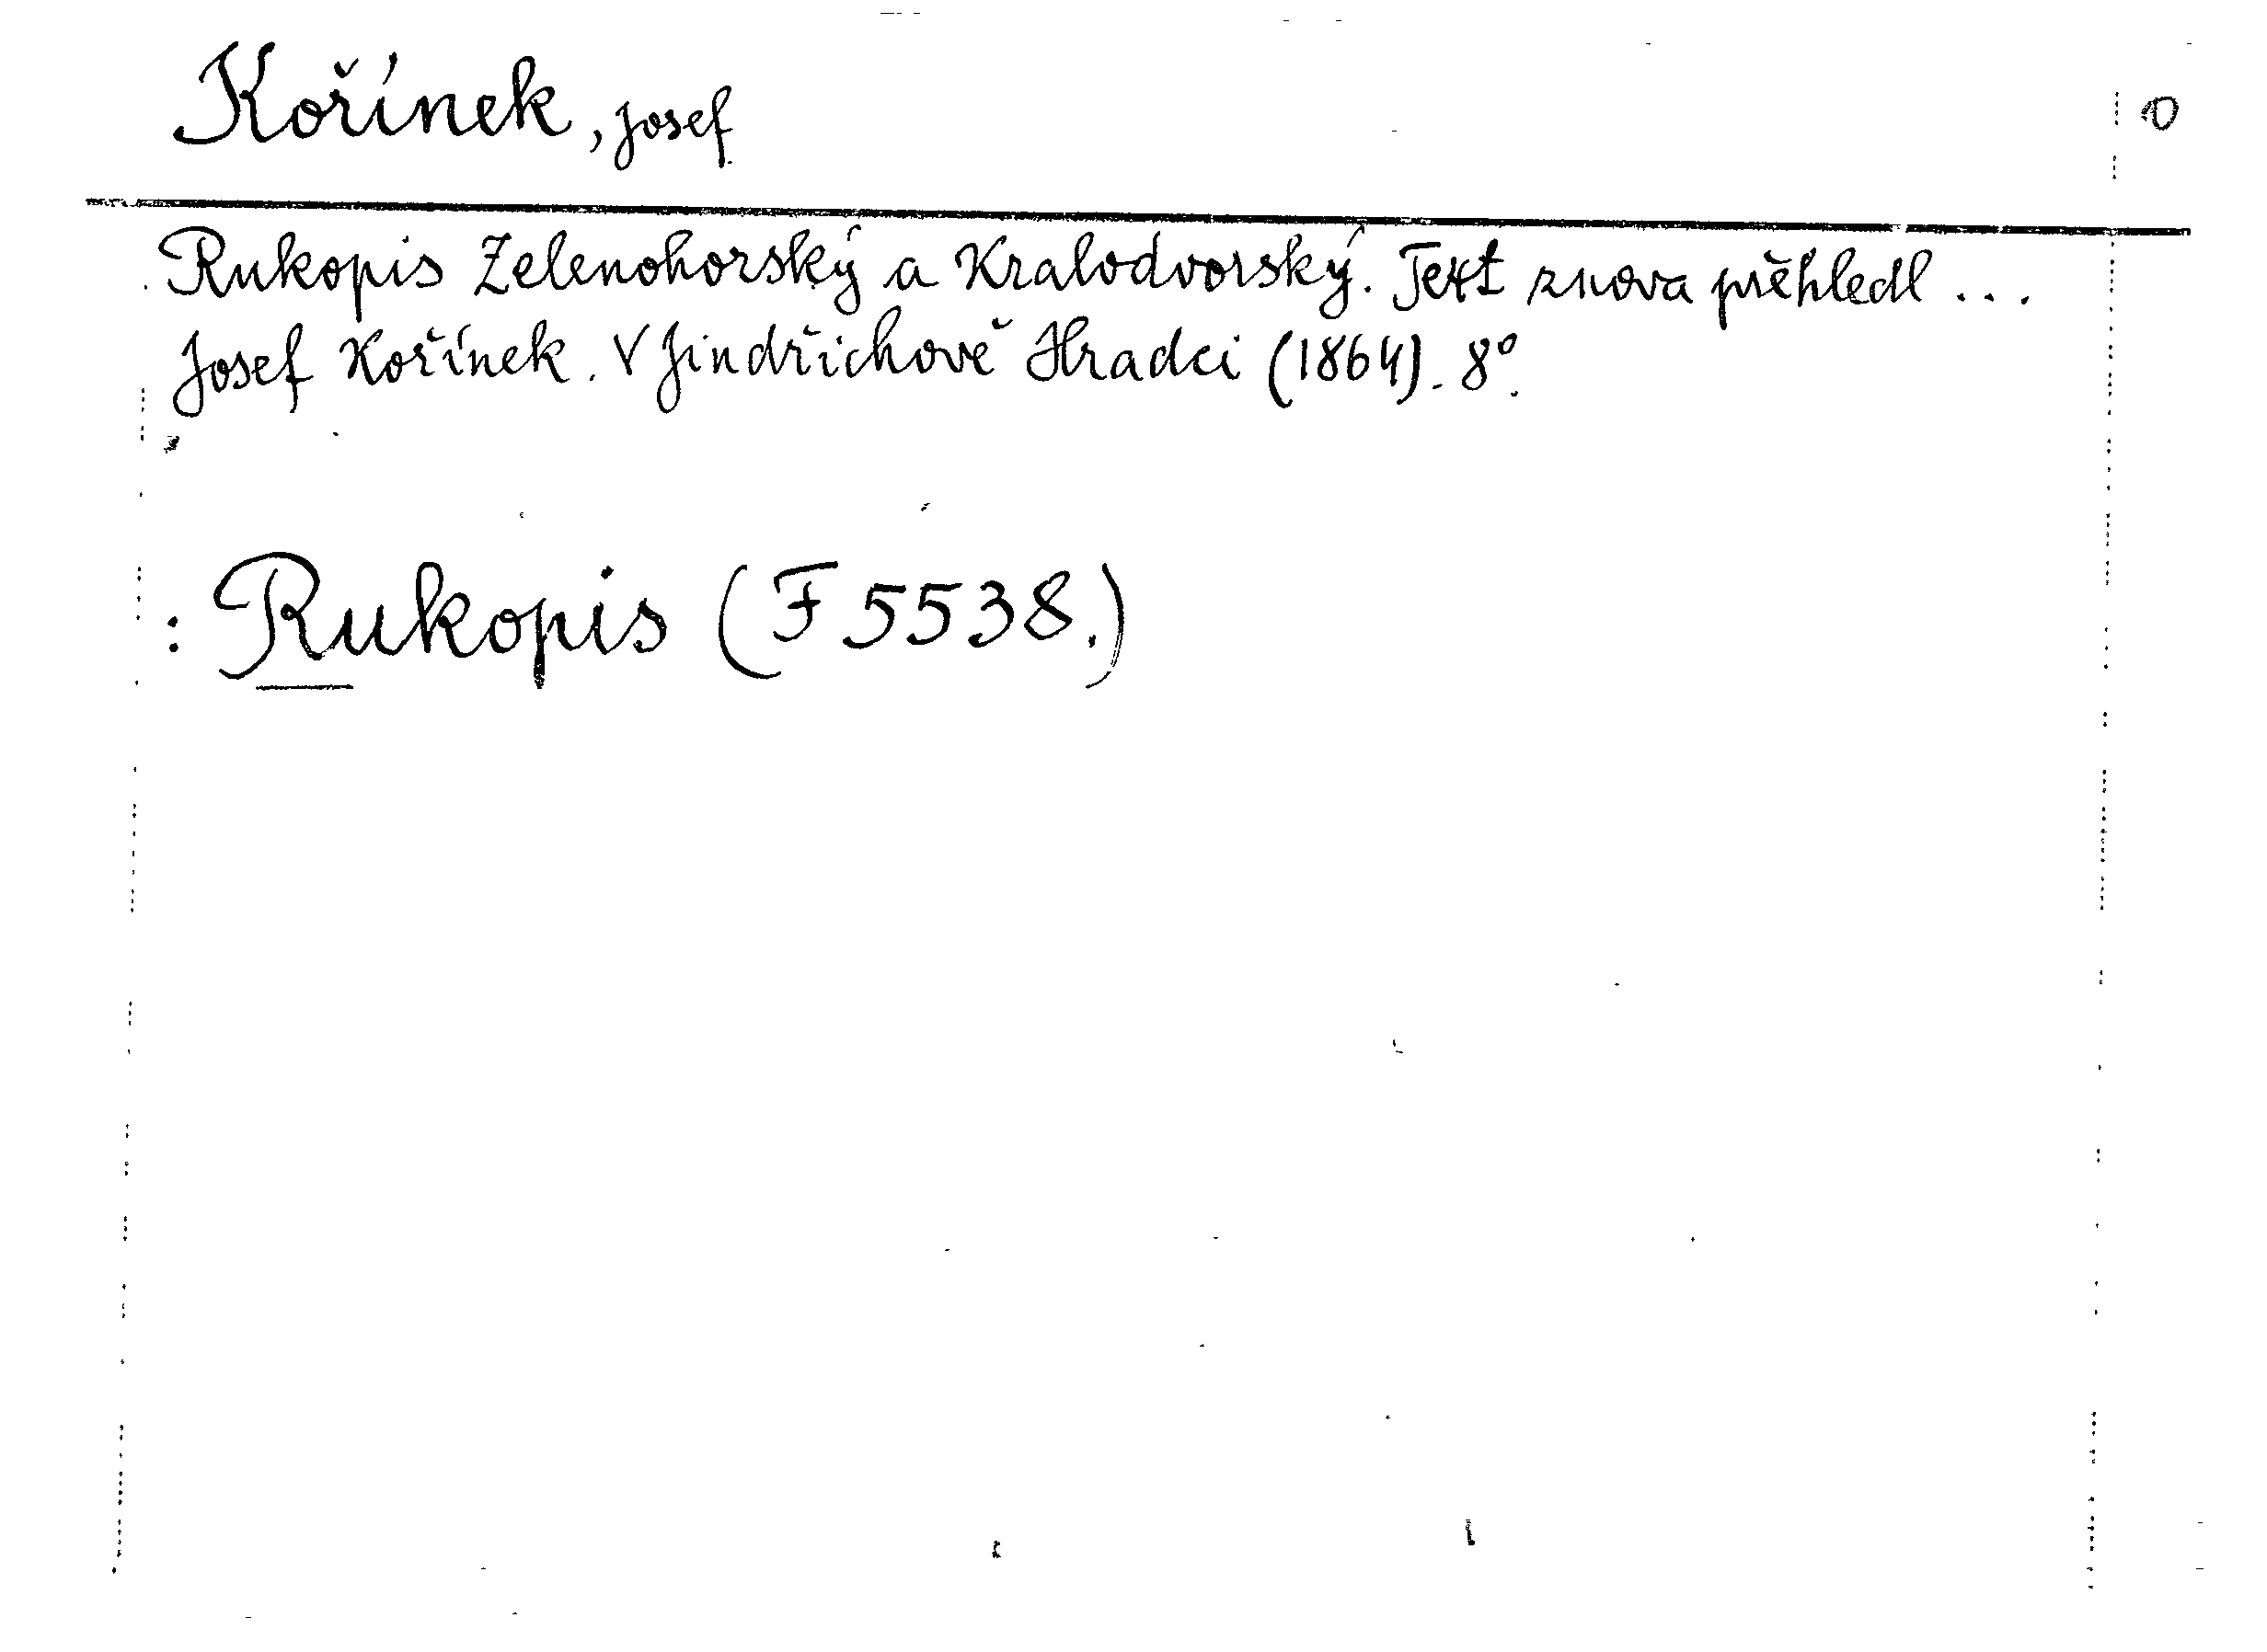 Kořínek, Josef
Rukopis Zelenohorský a Kralodvorský. Text znova přěhledl ...
Josef Kořínek. V Jindřichově Hradci (1864). 8°.
: Rukopis (F 5538.)